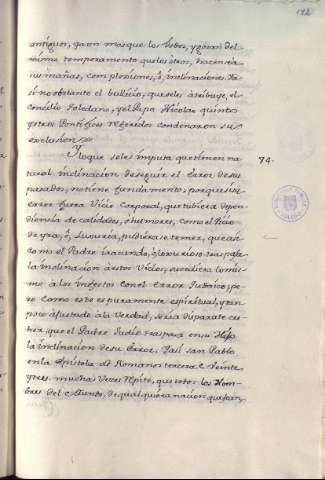 112
antiguos, ya on mas que los otros, y gozan del
mismo temperamento que los otros, hacen ta
sus mañas, complexiones, è, inclinaciones. Y a
si no obstante el bullicio, que se les atribuye, el
Concilio Toledano, y el Papa Nicolao quinto
y otros Pontifices referidos condenaron su
exclusion.
Y lo que se les imputa que tienen na
74.
tural inclinacion de seguir el Error de sus
pasados, no tiene fundamento; porque si su
error fuera Vicio Corporal, que tubiera depen
diencia de calidades, ò humores, como el Vicio
de yra, ò, Luxuria, pudiera se temer, que asi
como el Padre iracundo, ò luxurioso traspasa
la inclinacion à estos Vicios, sucediera lo mis
mo à los infectos con el Error Judaico; pe
ro como este es puramente espiritual, y tan
poco ajustado à la Verdad, seria disparate de
cir, que el Padre Judio traspasa en su Hijo
la inclinacion de su Error. Pues san Pablo
en la Epistola ad Romanos tercero C. Veinte
y tres muchas Veces repite, que todos los Hom
bres del Mundo, de qualquiera nacion que sean,